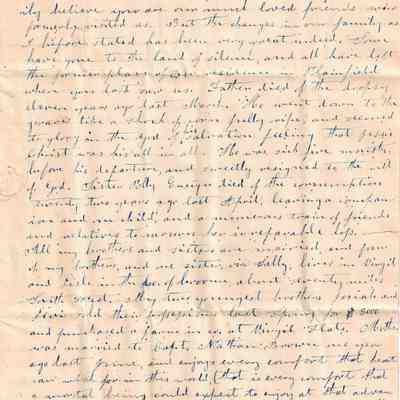 ily believe you are our much loved friends who
formerly visited us. But the changes in our family, as
I before stated has been very great indeed. Some
have gone to the land of silence, and all have left
the former place of our residence in Plainfield
where you last saw us. Father died of the dropsy
eleven years ago last March. He went down to the
grave like a shock of corn fully ripe, and seemed
to glory in the God of Salvation feeling that Jesus
Christ was his all in all. He was sick five months
before his departure, and sweetly resigned to the will
of God. Sister Polly Ensign died of the consumption
twenty two years ago last April, leaving a compan
ion and one child, and a numerous train of friends
and relatives to mourn her irreparable loss.
All my brothers and sisters are married, and four
of my brothers, and one sister, viz Sally, lives in Virgil
and Lisle in the co. of Broome, about seventy miles
South West. My two youngest brothers Josiah and
Levi sold their possessions last spring for $ 500
and purchased a farm in co. at Virgil Flats. Mother
was married to Capt. Nathan Brown one year
ago last June, and enjoys every comfort that heart
can wish for in this world (that is every comfort that
a mortal being could expect to enjoy at that advan